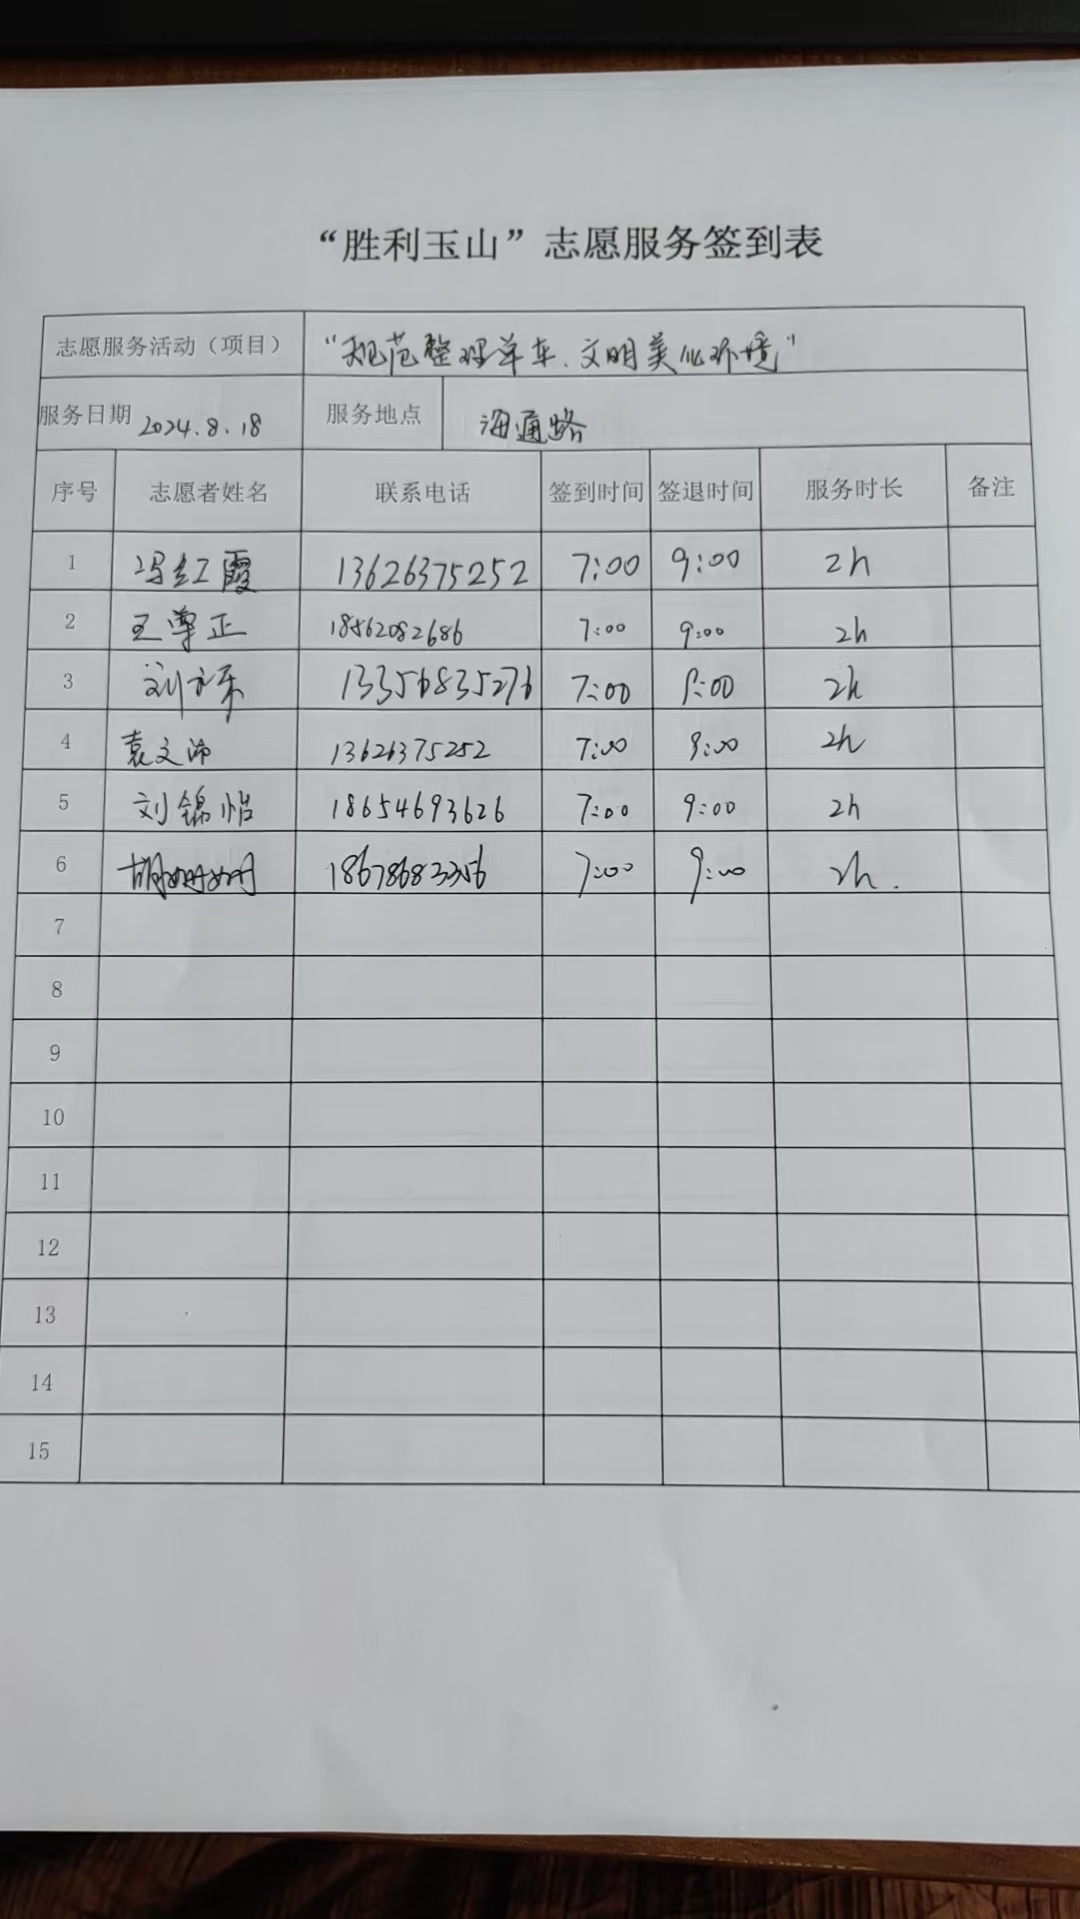 “胜利玉山”志愿服务签到表
志愿服务活动（项目） “规范整理单车、文明美化环境”
服务日期 2024.8.18 服务地点 海通路
序号 志愿者姓名 联系电话 签到时间 签退时间 服务时长 备注
1 冯红霞 13626375252 7:00 9:00 2h
2 王尊正 18562082686 7:00 9:00 2h
3 刘 13356835276 7:00 9:00 2h
4 袁文沛 13626375252 7:00 9:00 2h
5 刘锦怡 18654693626 7:00 9:00 2h
6 胡姗姗 18678683356 7:00 9:00 2h.
7
8
9
10
11
12
13
14
15